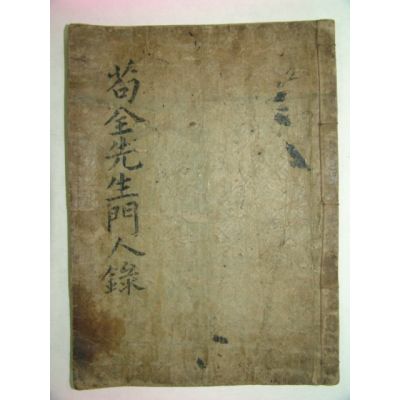 苟全先生門人錄